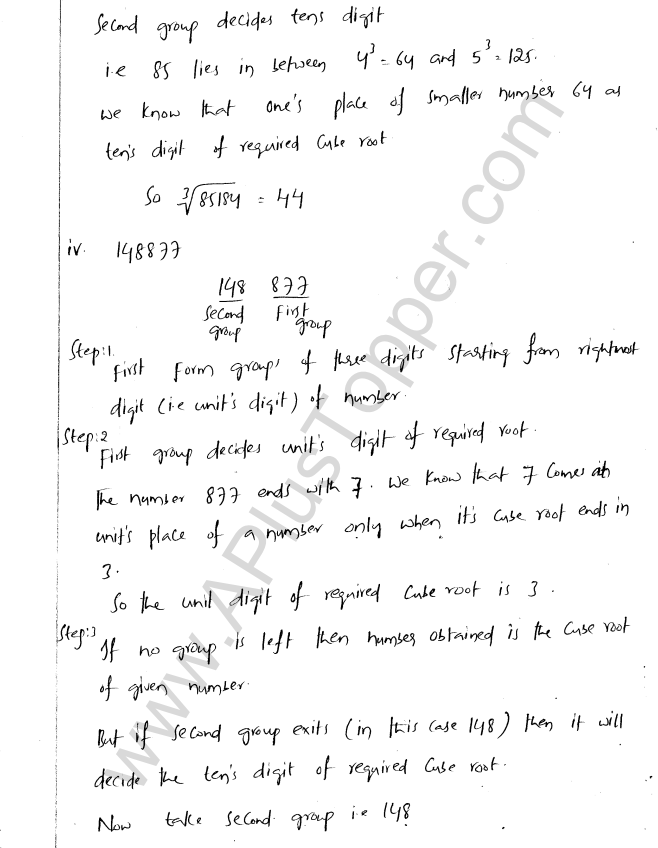 Second group decides tens digit
i.e 85 lies in between 4³ = 64 and 5³ = 125.
we know that one's place of smaller number 64 as
ten's digit of required Cube root
So ∛85184 = 44
iv. 148877
148 877
Second group First group
Step:1.
First form groups of three digits starting from rightmost
digit (i.e unit's digit) of number.
Step:2
First group decides unit's digit of required root.
The number 877 ends with 7. we know that 7 comes at
unit's place of a number only when it's cube root ends in
3.
So the unit digit of required Cube root is 3.
Step:3
If no group is left then number obtained is the Cube root
of given number.
But if second group exits (in this case 148) then it will
decide the ten's digit of required Cube root.
Now take second group i.e 148
www.APlusTopper.com